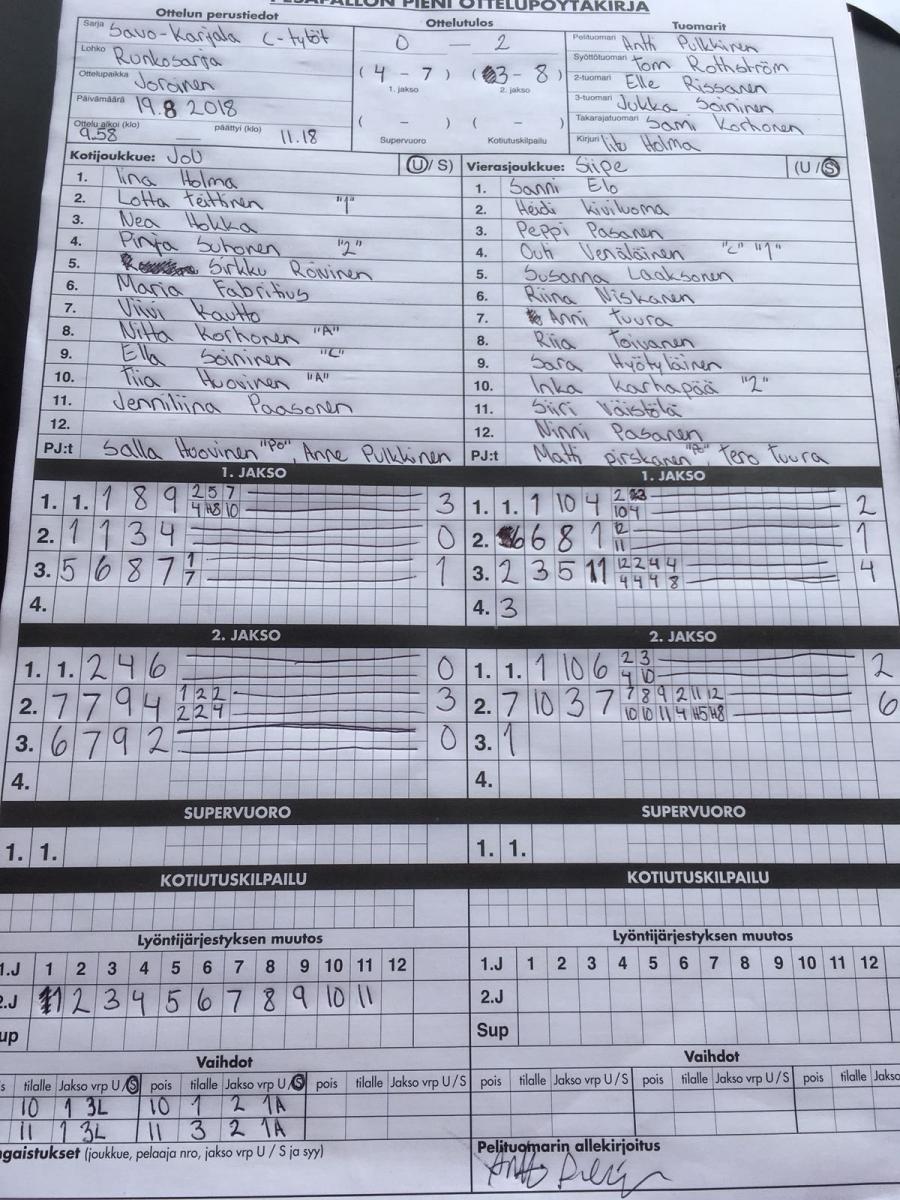 PESÄPALLON PIENI OTTELUPÖYTÄKIRJA
Ottelun perustiedot
Sarja Savo-Karjala C-tytöt
Lohko Runkosarja
Ottelupaikka Joroinen
Päivämäärä 19.8 2018
Ottelu alkoi (klo) 9.58 päättyi (klo) 11.18
Ottelutulos
0 — 2
(4 - 7) (3 - 8)
1. jakso 2. jakso
( - ) ( - )
Supervuoro Kotiutuskilpailu
Tuomarit
Pelituomari Antti Pulkkinen
Syöttötuomari Tom Rothström
2-tuomari Elle Rissanen
3-tuomari Jukka Soininen
Takarajatuomari Sami Korhonen
Kirjuri Holma
Kotijoukkue: JoU (U/S)
1. Iina Holma
2. Lotta Teittinen "1"
3. Nea Hokka
4. Pinja Suhonen "2"
5. Sirkku Roivinen
6. Maria Fabritius
7. Viivi Kautto
8. Nitta Korhonen "A"
9. Ella Soininen "C"
10. Tiia Huovinen "A"
11. Jenniliina Paasonen
12.
PJ:t Salla Huovinen "Po", Anne Pulkkinen
Vierasjoukkue: Siipe (U/S)
1. Sanni Elo
2. Heidi Kiviluoma
3. Peppi Pasanen
4. Outi Venäläinen "C" "1"
5. Susanna Laaksonen
6. Riina Niskanen
7. Anni Tuura
8. Riia Toivanen
9. Sara Hyötyläinen
10. Inka Karhapää "2"
11. Siiri Väistölä
12. Ninni Pasanen
PJ:t Matti Pirskanen Tero Tuura
1. JAKSO
1. 1. 1 8 9 2 5 7 3
4 H8 10
2. 1 1 3 4 0
3. 5 6 8 7 1 1
7
4.
2. JAKSO
1. 1. 2 4 6 0
2. 7 7 9 4 1 2 2 3
2 2 4
3. 6 7 9 2 0
4.
SUPERVUORO
1. 1.
KOTIUTUSKILPAILU
Lyöntijärjestyksen muutos
1.J 1 2 3 4 5 6 7 8 9 10 11 12
2.J 1 2 3 4 5 6 7 8 9 10 11
up
Vaihdot
s tilalle Jakso vrp U/S pois tilalle Jakso vrp U/S pois tilalle Jakso vrp U/S
10 1 3L 10 1 2 1A
11 1 3L 11 3 2 1A
ngaistukset (joukkue, pelaaja nro, jakso vrp U / S ja syy)
1. JAKSO
1. 1. 1 10 4 2 2
10 4
2. 6 8 1 12 1
11
3. 2 3 5 11 12 2 4 4 4
4 4 4 8
4. 3
2. JAKSO
1. 1. 1 10 6 2 3 2
4 10
2. 7 10 3 7 7 8 9 2 11 12 6
10 10 11 4 H5 H8
3. 1
4.
SUPERVUORO
1. 1.
KOTIUTUSKILPAILU
Lyöntijärjestyksen muutos
1.J 1 2 3 4 5 6 7 8 9 10 11 12
2.J
Sup
Vaihdot
pois tilalle Jakso vrp U/S pois tilalle Jakso vrp U/S pois tilalle Jakso
Pelituomarin allekirjoitus